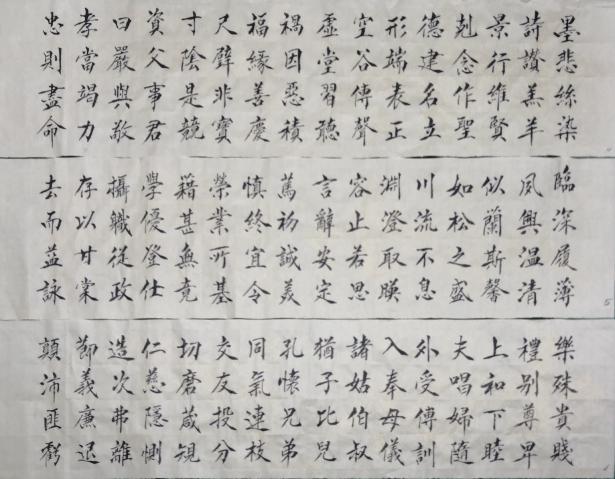 墨悲絲染
詩讚羔羊
景行維賢
剋念作聖
德建名立
形端表正
空谷傳聲
虛堂習聽
禍因惡積
福緣善慶
尺璧非寶
寸陰是競
資父事君
曰嚴與敬
孝當竭力
忠則盡命
臨深履薄
夙興温凊
似蘭斯馨
如松之盛
川流不息
淵澄取暎
容止若思
言辭安定
篤初誠美
慎終宜令
榮業所基
籍甚無竟
學優登仕
攝職從政
存以甘棠
去而益詠
樂殊貴賤
禮別尊卑
上和下睦
夫唱婦隨
外受傅訓
入奉母儀
諸姑伯叔
猶子比兒
孔懷兄弟
同氣連枝
交友投分
切磨葴規
仁慈隱惻
造次弗離
節義廉退
顛沛匪虧